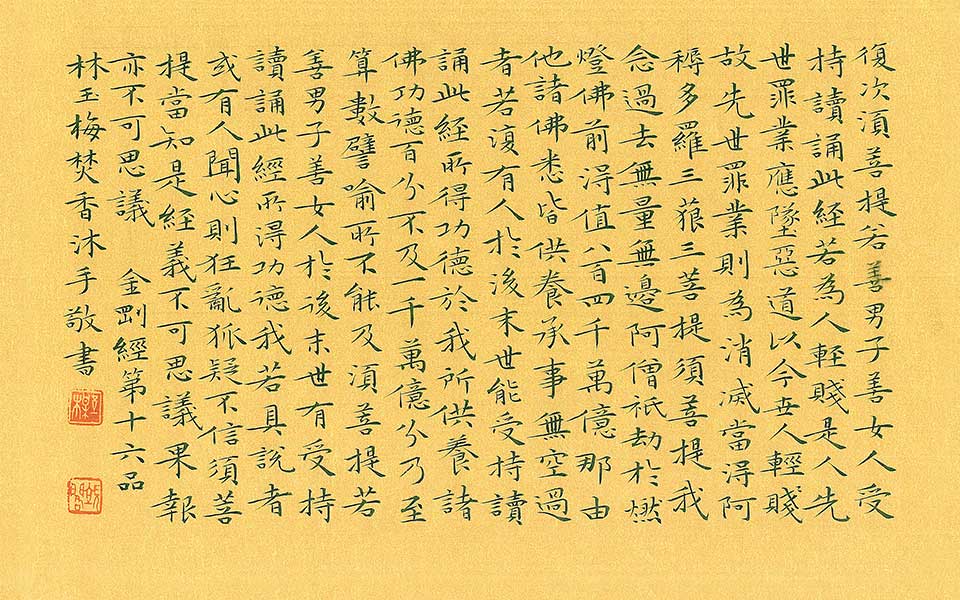 復次須菩提若善男子善女人受
持讀誦此経若為人輕賤是人先
世罪業應墜惡道以今世人輕賤
故先世罪業則為消滅當得阿
耨多羅三藐三菩提須菩提我
念過去無量無邊阿僧祇劫於燃
燈佛前得值八百四千萬億那由
他諸佛悉皆供養承事無空過
者若復有人於後末世能受持讀
誦此経所得功德於我所供養諸
佛功德百分不及一千萬億分乃至
算數譬喻所不能及須菩提若
善男子善女人於後末世有受持
讀誦此經所得功德我若具說者
或有人聞心則狂亂狐疑不信須菩
提當知是經義不可思議果報
亦不可思議 金剛經第十六品
林玉梅焚香沐手敬書